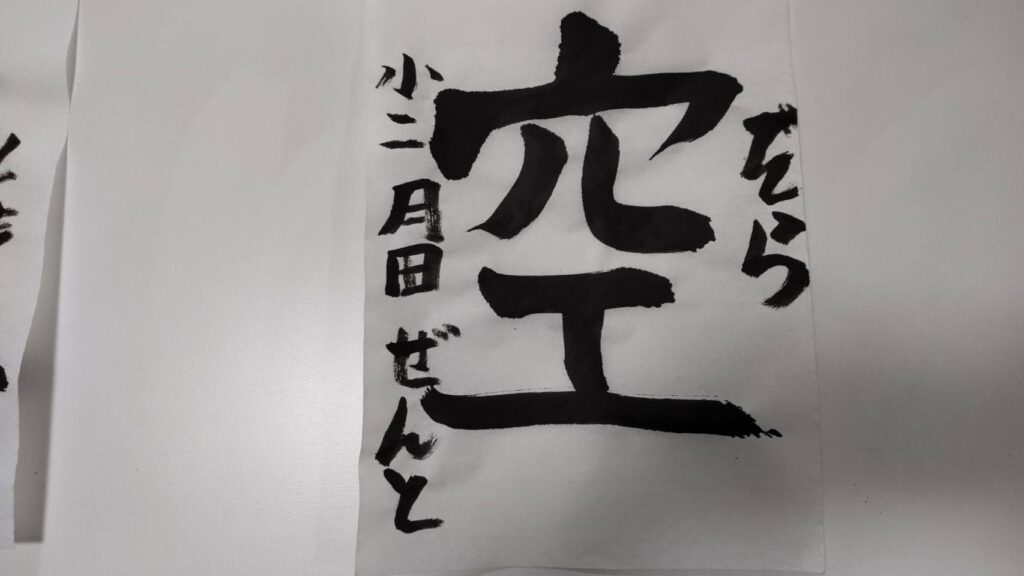 そら
空
小二 月田 ぜんと